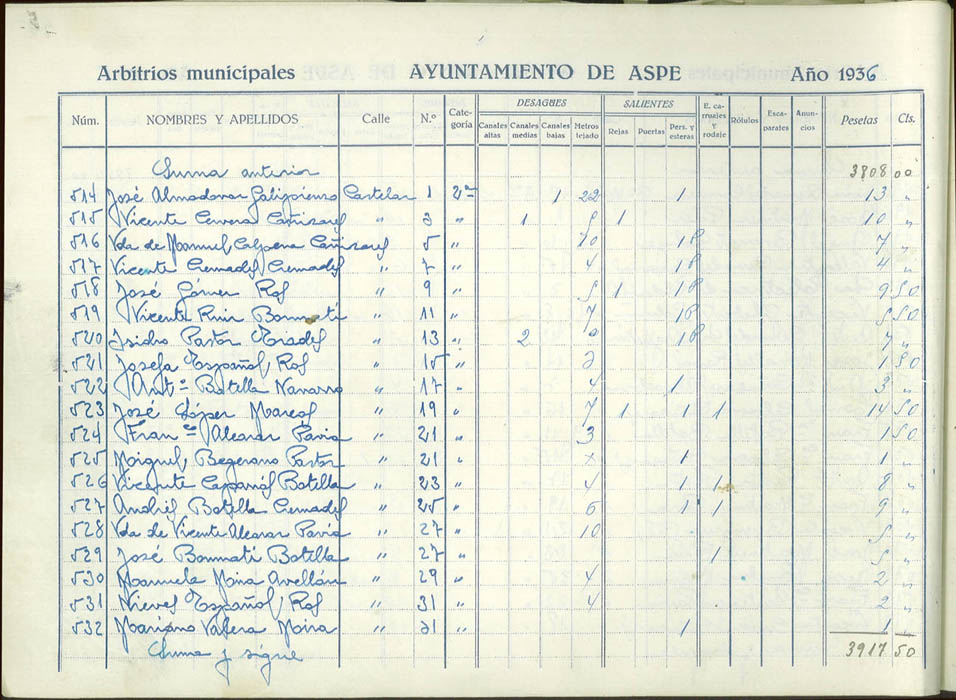 Arbitrios municipales AYUNTAMIENTO DE ASPE Año 1936
Núm. NOMBRES Y APELLIDOS Calle N.º Cate-goría DESAGUES Canales altas Canales medias Canales bajas Metros tejado SALIENTES Rejas Puertas Pers. y esteras E. ca-rruajes y rodaje Rótulos Esca-parates Anun-cios Pesetas Cts.
Suma anterior 3808 00
514 José Almodovar Galiporenzo Castelar 1 2ª 1 22 1 13 "
515 Vicente Cervera Cañizares " 3 " 1 5 1 10 "
516 Vda de Manuel Calpena Cañizares " 5 " 10 1P 7 "
517 Vicente Cremades Cremades " 7 " 4 1P 4 "
518 José Gómez Ros " 9 " 5 1 1P 9 50
519 Vicente Ruiz Bonmatí " 11 " 7 1P 5 50
520 Isidro Pastor Prades " 13 " 2 1P 7 "
521 Josefa Español Ros " 15 " 3 1 50
522 Antº Botella Navarro " 17 " 4 1 3 "
523 José López Marcos " 19 " 7 1 1 1 14 50
524 Franco Alcaraz Pavia " 21 " 3 1 50
525 Miguel Begerano Pastor " 21 " 1 1 "
526 Vicente Caparrós Botella " 23 " 4 1 1 8 "
527 Andrés Botella Cremades " 25 " 6 1 1 9 "
528 Vda de Vicente Alcaraz Pavia " 27 " 10 5 "
529 José Bonmatí Botella " 27 " 1 5 "
530 Manuela Mira Avellán " 29 " 4 2 "
531 Nieves Español Ros " 31 " 4 2 "
532 Mariano Valera Moira " 31 " 1 1 "
Suma y sigue 3917 50